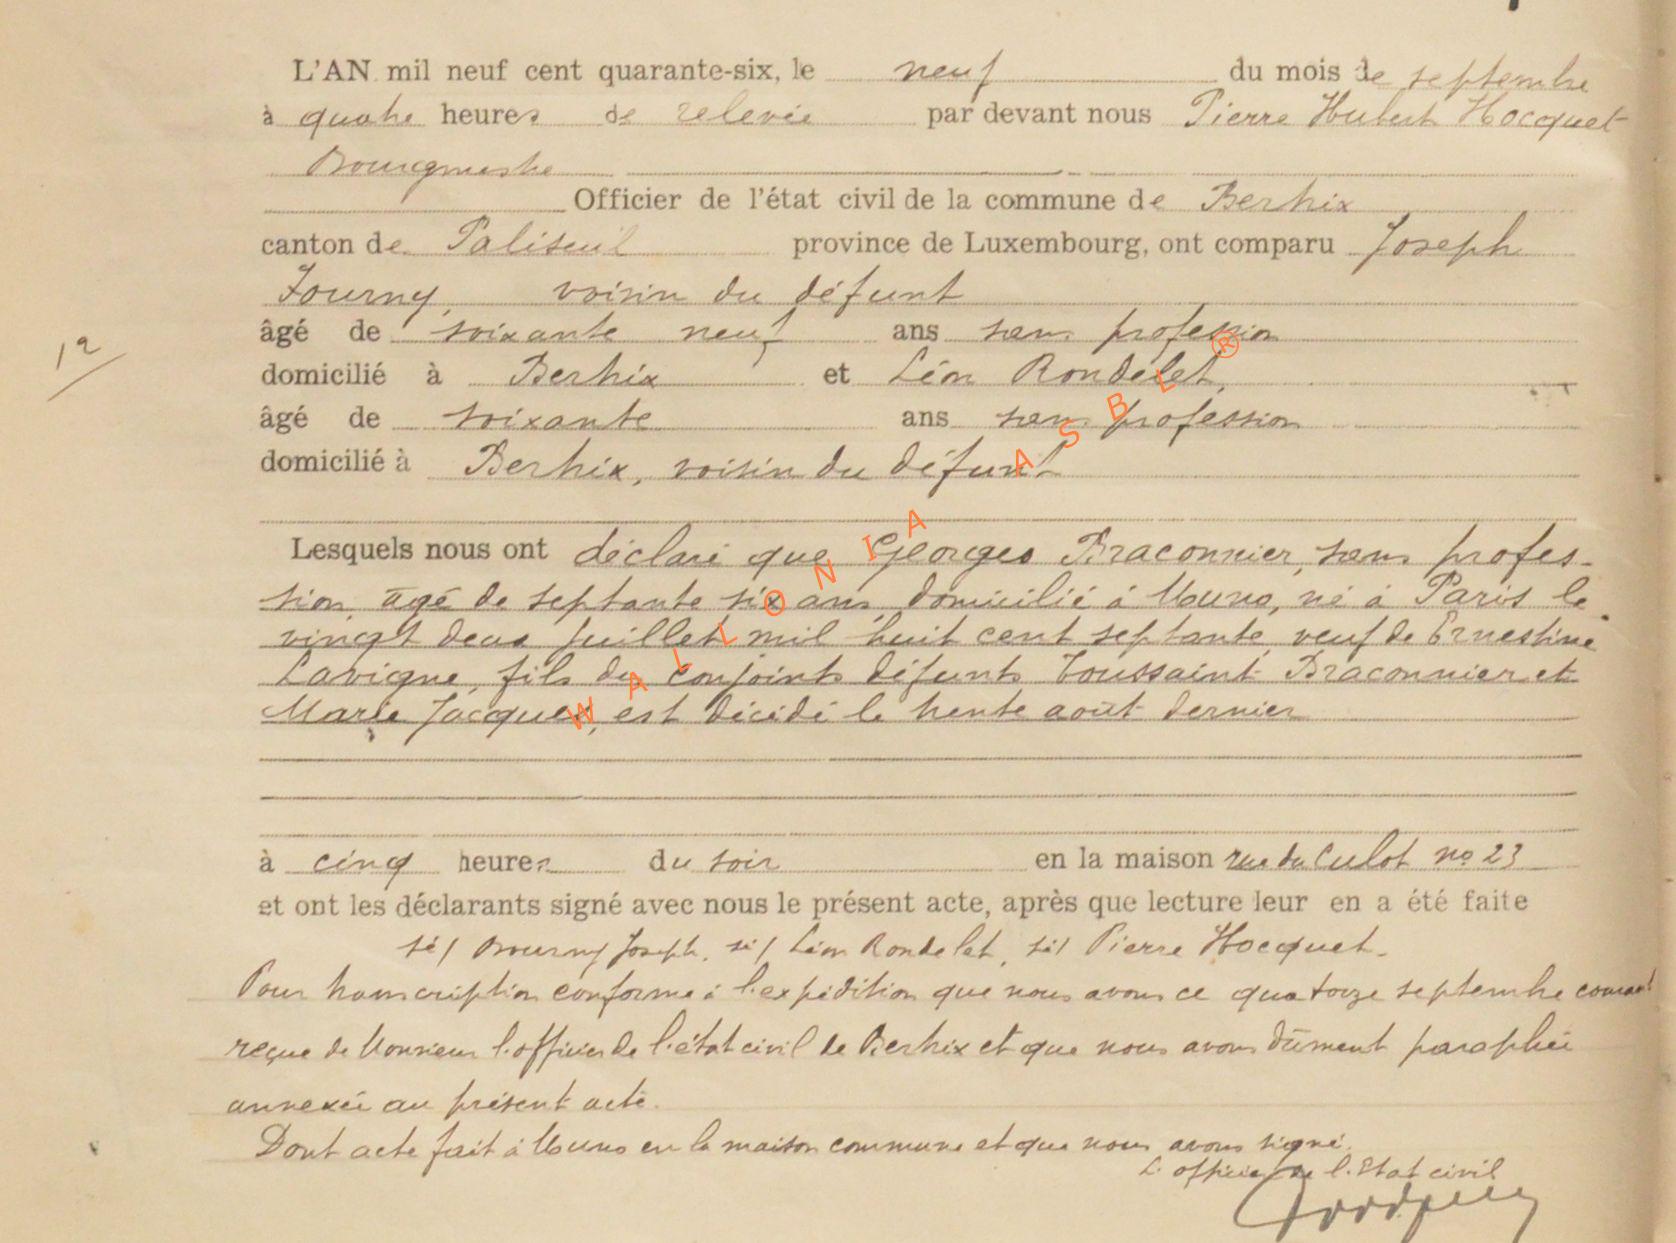 L'AN mil neuf cent quarante-six, le neuf du mois de septembre
à quatre heures de relevée par devant nous Pierre Hubert Hocquet
Bourgmestre
Officier de l'état civil de la commune de Bertrix
canton de Paliseul province de Luxembourg, ont comparu Joseph
Fourny, voisin du défunt
âgé de soixante neuf ans sans profession
domicilié à Bertrix et Léon Rondelet,
âgé de soixante ans sans profession
domicilié à Bertrix, voisin du défunt
12
Lesquels nous ont déclaré que Georges Braconnier, sans profes-
sion, âgé de septante six ans, domicilié à Muno, né à Paris le
vingt deux juillet mil huit cent septante, veuf de Ernestine
Lavigne, fils des conjoints défunts Toussaint Braconnier et
Marie Jacques, est décédé le trente août dernier
à cinq heures du soir en la maison rue du Culot no 23
et ont les déclarants signé avec nous le présent acte, après que lecture leur en a été faite
sé/ Joseph, sé/ Léon Rondelet, sé/ Pierre Hocquet.
Pour transcription conforme à l'expédition que nous avons ce quatorze septembre courant
reçue de Monsieur l'officier de l'état civil de Bertrix et que nous avons dûment paraphée
annexée au présent acte.
Dont acte fait à Muno en la maison commune et que nous avons signé.
L'officier de l'Etat civil
WALLONIA ASBL ®